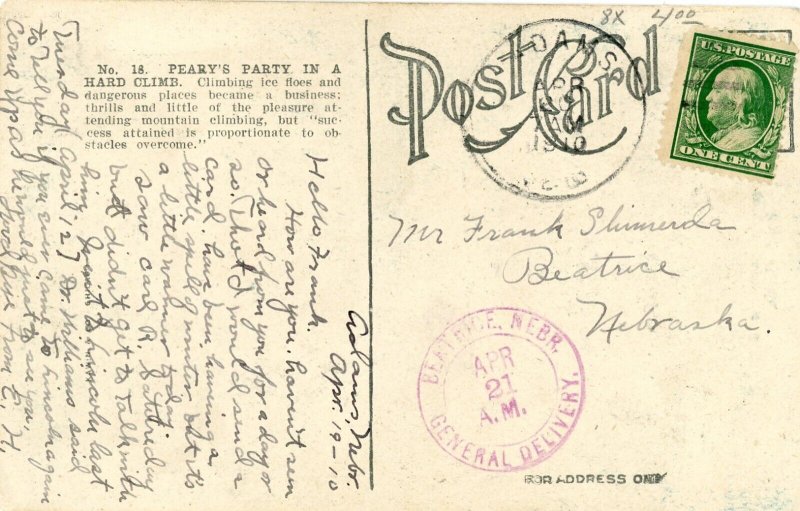 8x 4.00
Post Card
No. 18. PEARY'S PARTY IN A
HARD CLIMB. Climbing ice floes and
dangerous places became a business;
thrills and little of the pleasure at-
tending mountain climbing, but "suc-
cess attained is proportionate to ob-
stacles overcome."
ADAMS
APR
1910
NEB.
U.S. POSTAGE
ONE CENT
Mr Frank Shimerda
Beatrice
Nebraska.
BEATRICE, NEBR.
APR
21
A.M.
GENERAL DELIVERY.
FOR ADDRESS ONLY
Adams, Nebr.
Apr. 19-10
Hello Frank.
How are you. haven't seen
or heard from you for a day or
so. Thot I would send a
card. have been having a
little spell of winter but its
a little warmer today.
saw Carl R. Saturday
but didn't get to talk with
him. to Lincoln last
Tuesday April 12] Dr. Williams said
to tell you if you ever came to Lincoln again
come up as he would just to see you,
Good bye from E. H.